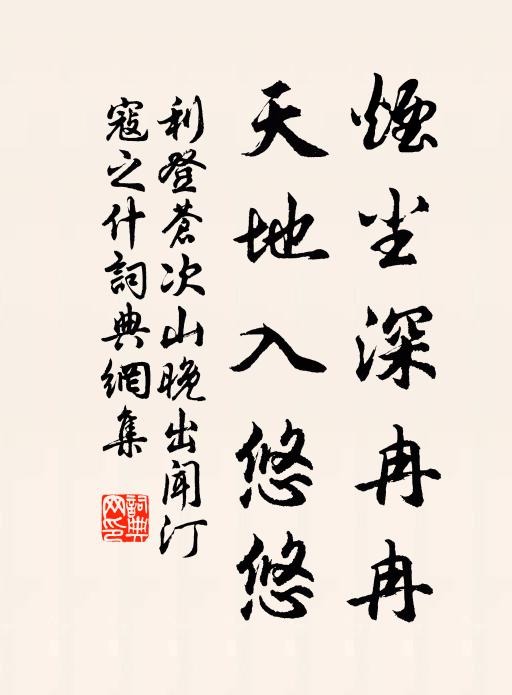 煙尘深冉冉
天地入悠悠
利登蒼次山晚出闻汀
寇之什詞典網集
詞典网印